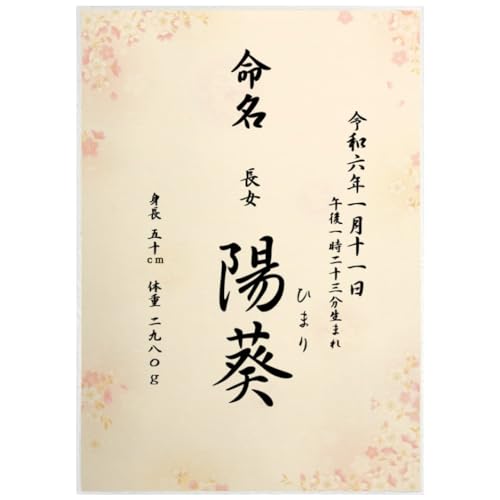 令和六年一月十一日
午後一時二十三分生まれ
命名
長女
陽葵
ひまり
身長 五十cm 体重 二九八〇g